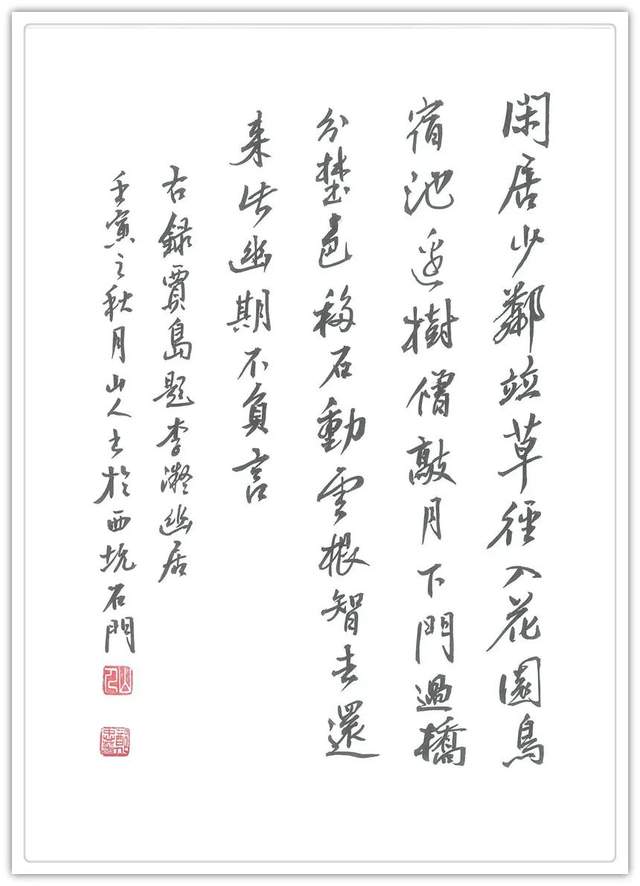 閑居少鄰竝草徑入花園鳥
宿池邊樹僧敲月下門過橋
分埜色移石動雲根智去還
来此幽期不負言
右録賈島題李凝幽居
壬寅之秋月山人书於西坑石門
山人